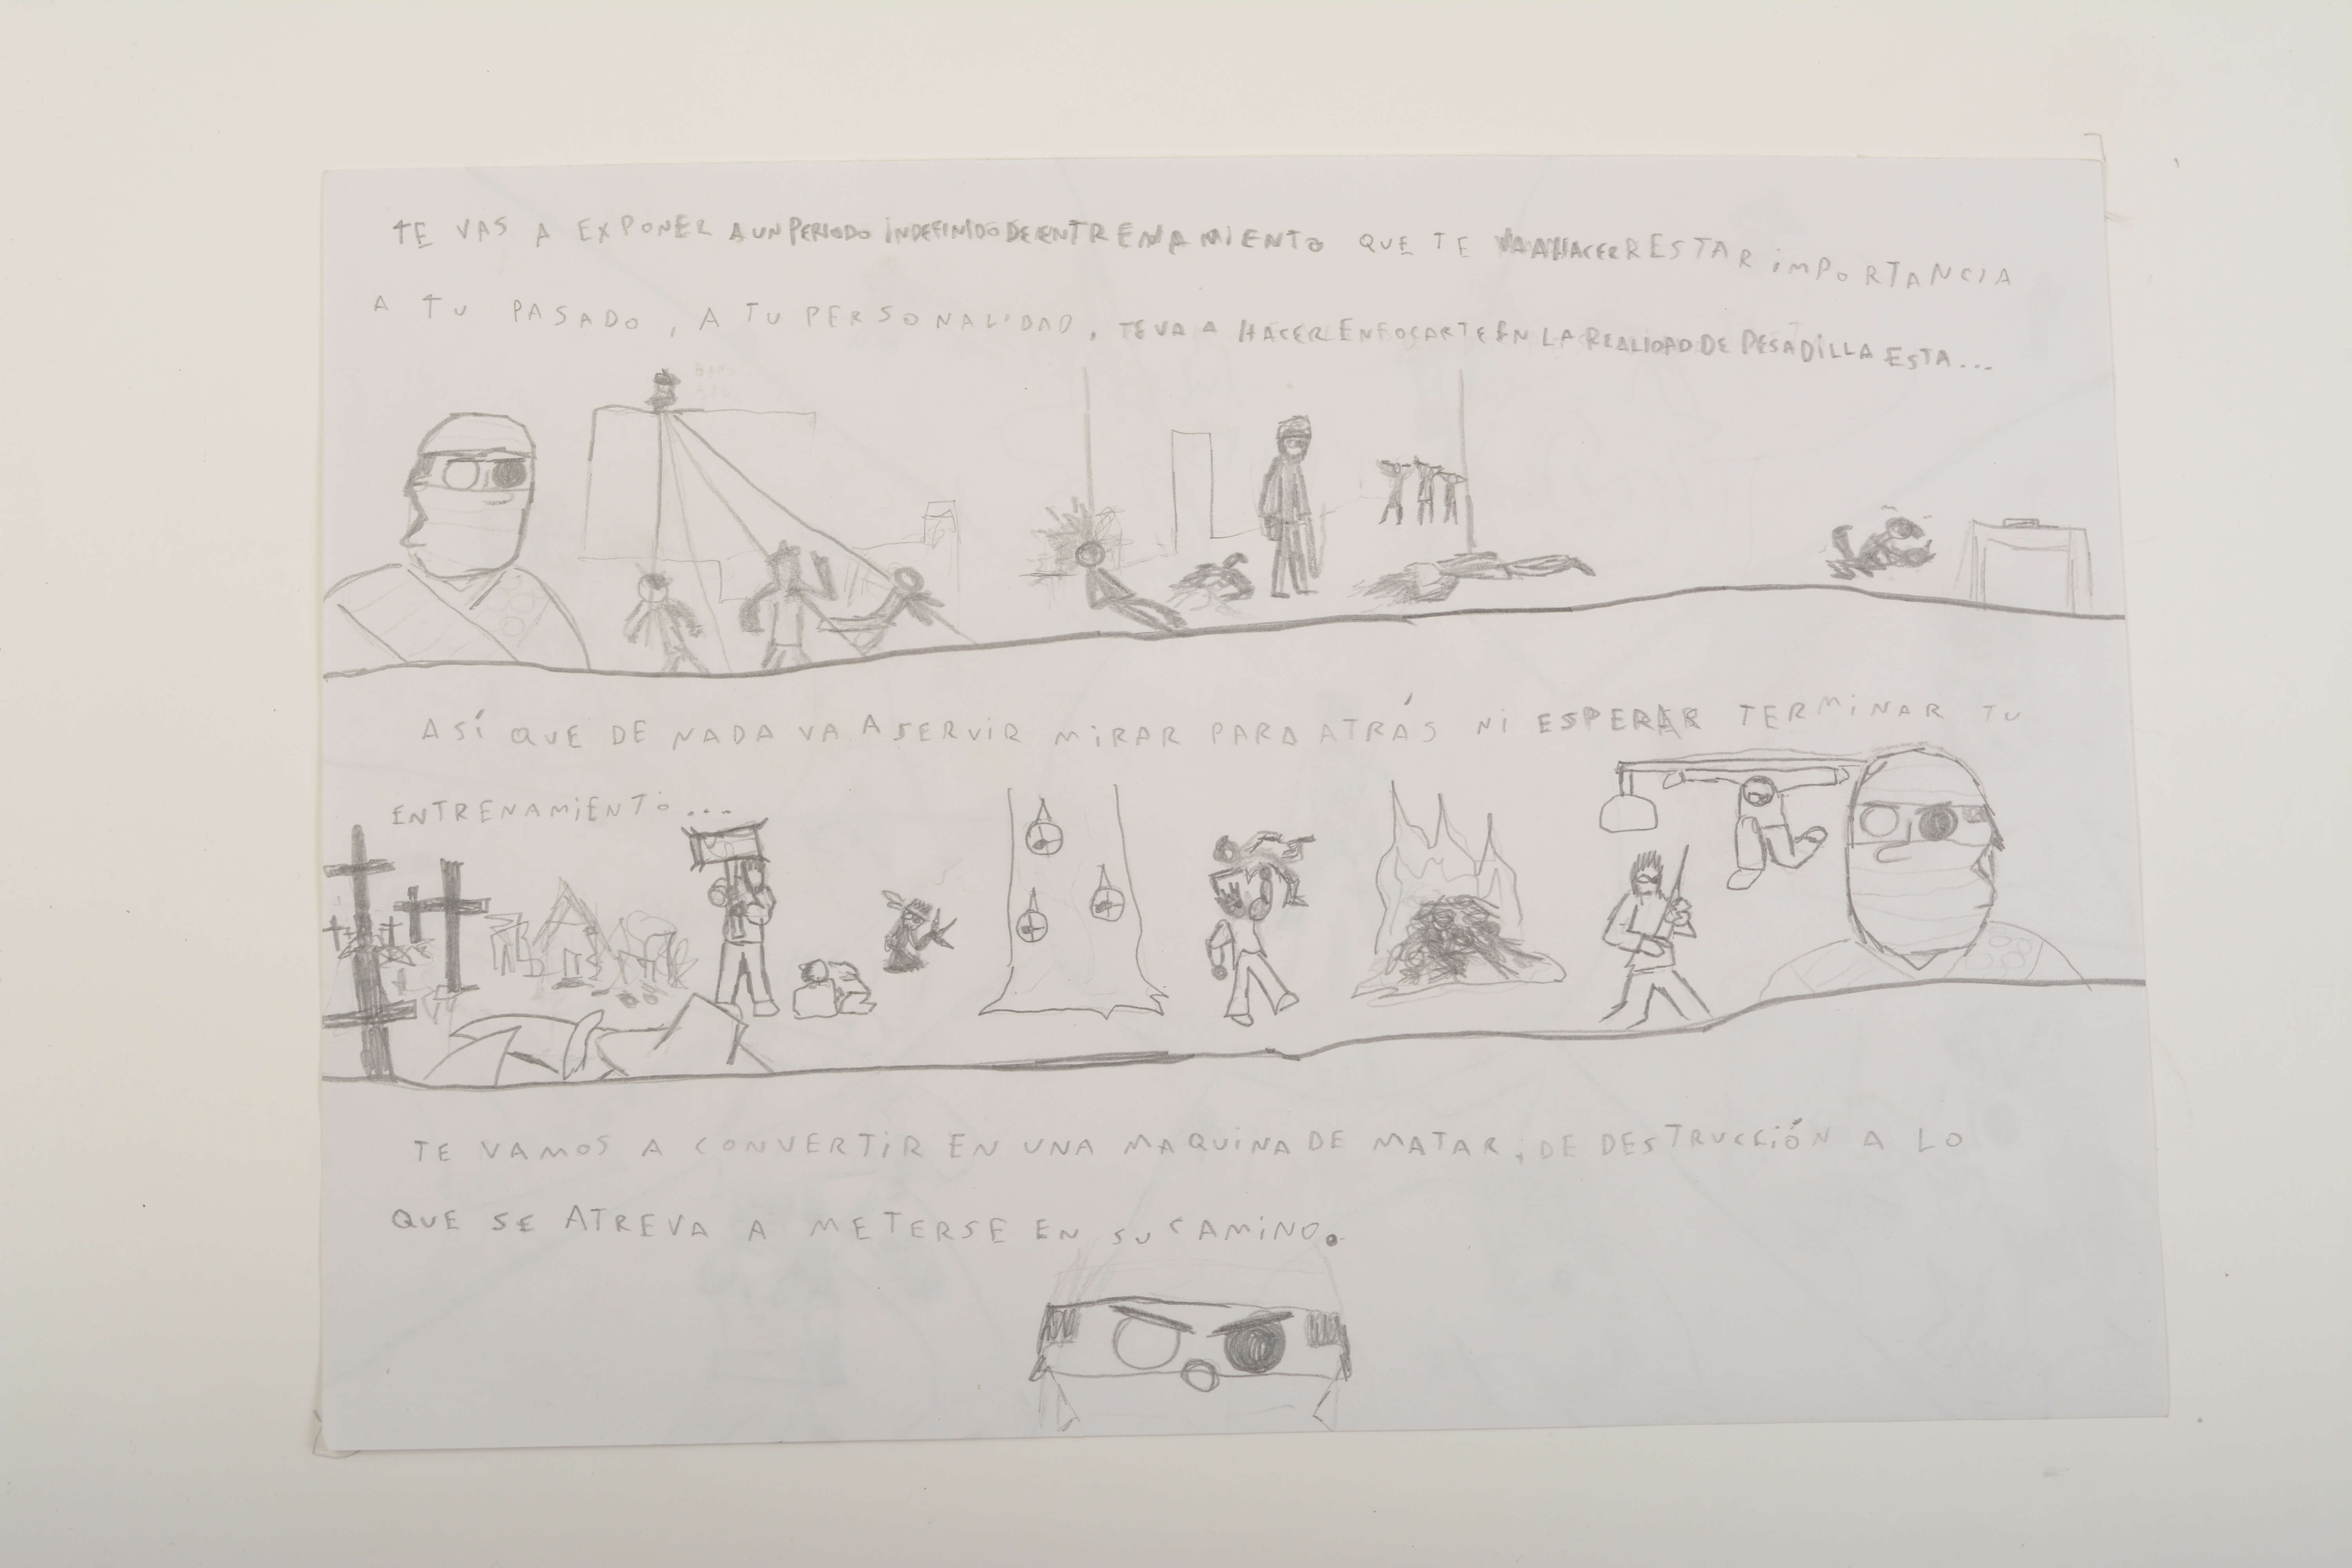 TE VAS A EXPONER A UN PERIODO INDEFINIDO DE ENTRENAMIENTO QUE TE VA A HACER RESTAR IMPORTANCIA
A TU PASADO, A TU PERSONALIDAD, TE VA A HACER ENFOCARTE EN LA REALIDAD DE PESADILLA ESTA...
ASÍ QUE DE NADA VA A SERVIR MIRAR PARA ATRÁS NI ESPERAR TERMINAR TU
ENTRENAMIENTO...
TE VAMOS A CONVERTIR EN UNA MAQUINA DE MATAR, DE DESTRUCCIÓN A LO
QUE SE ATREVA A METERSE EN SU CAMINO.